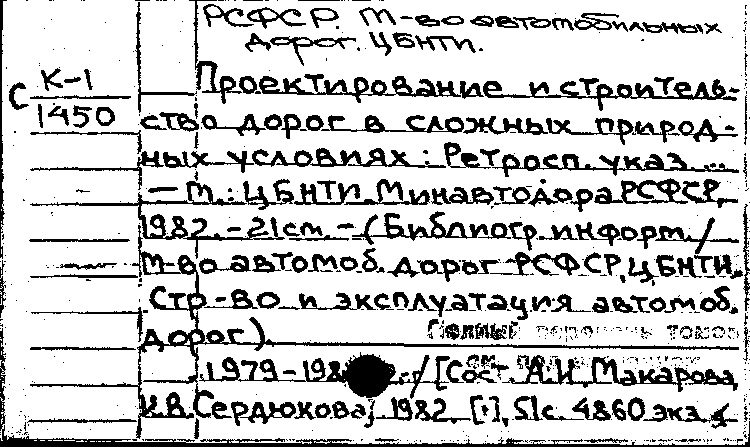 РСФСР. М-во автомобильных
дорог. ЦБНТИ.
С К-1
1450
Проектирование и строитель-
ство дорог в сложных природ-
ных условиях: Ретросп. указ ...
— М.: ЦБНТИ Минавтодора РСФСР,
1982. - 21 см. - (Библиогр. информ. /
М-во автомоб. дорог РСФСР, ЦБНТИ.
Стр-во и эксплуатация автомоб.
дорог).
Полный перечень томов
см. под
1979-198 / [Сост. А.И. Макарова,
И.В. Сердюкова], 1982. [1], 51с. 4860 экз.